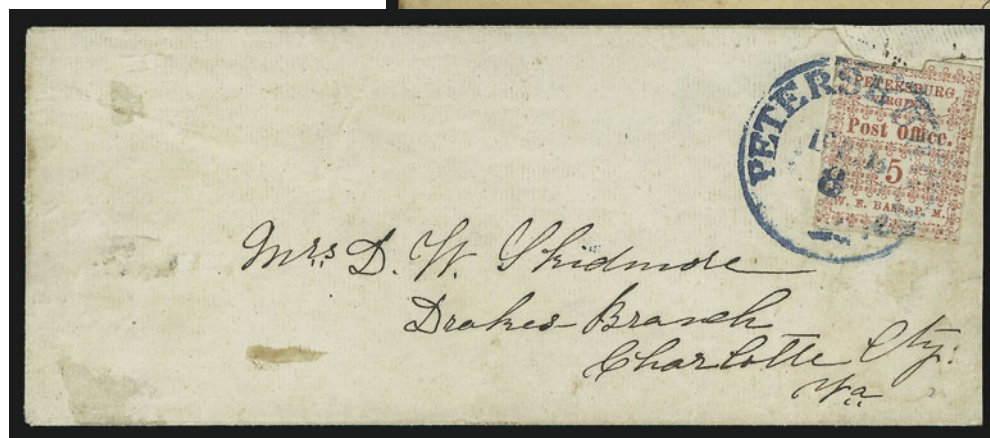 PETERSBURG
PETERSBURG,
VIRGINIA
Post Office.
5
W. E. BASS, P. M.
8
Mrs. D. W. Skidmore
Drakes Branch
Charlotte Cty.
Va